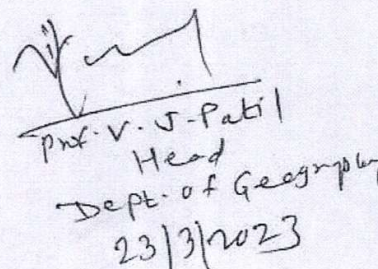 Prof. V. J. Patil
Head
Dept. of Geography
23/3/2023